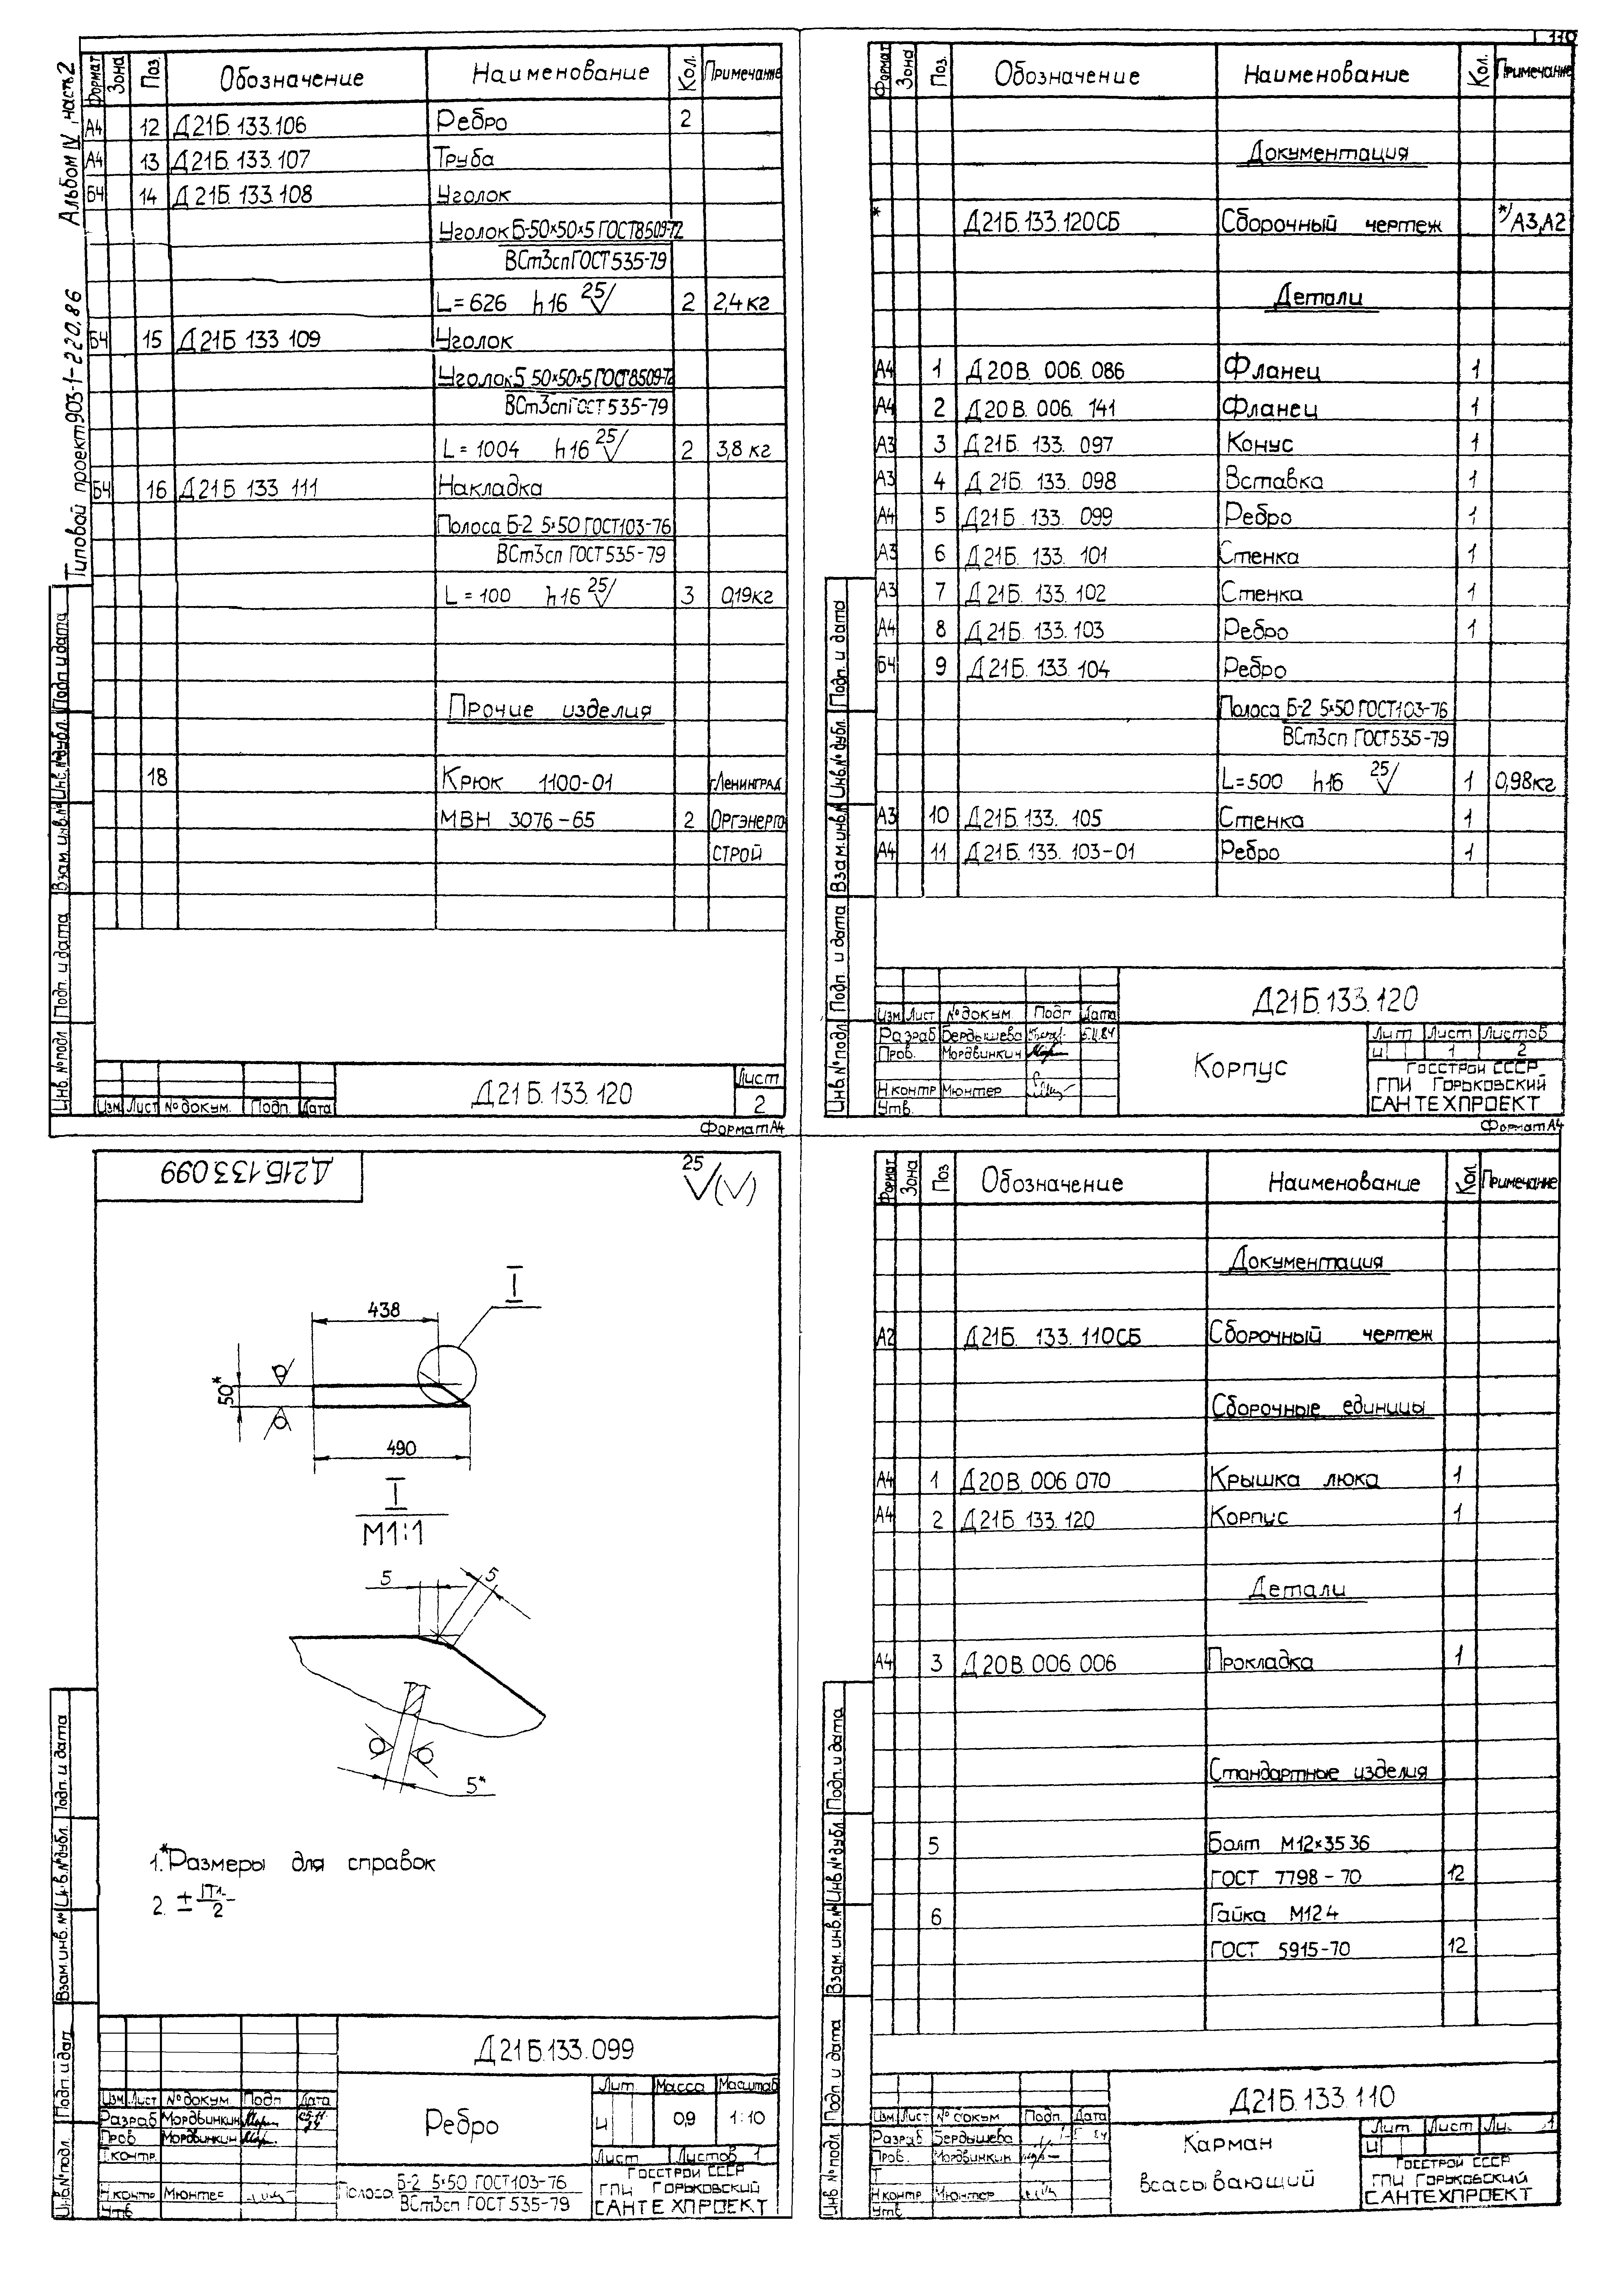 110
Типовой проект 903-1-220.86 Альбом IV, часть 2
Формат Зона Поз. Обозначение Наименование Кол. Примечание
А4 12 Д21Б.133.106 Ребро 2
А4 13 Д21Б.133.107 Труба
БЧ 14 Д21Б.133.108 Уголок
Уголок Б-50×50×5 ГОСТ 8509-72
ВСт3сп ГОСТ 535-79
L=626 h16 25√ 2 2,4 кг
БЧ 15 Д21Б 133 109 Уголок
Уголок Б 50×50×5 ГОСТ 8509-72
ВСт3сп ГОСТ 535-79
L=1004 h16 25√ 2 3,8 кг
БЧ 16 Д21Б 133 111 Накладка
Полоса Б-2 5×50 ГОСТ103-76
ВСт3сп ГОСТ 535-79
L=100 h16 25√ 3 0,19кг
Прочие изделия
18 Крюк 1100-01 г.Ленинград
МВН 3076-65 2 Оргэнерго
строй
Инв.№подл Подп. и дата Взам.инв.№ Инв.№дубл. Подп и дата
Изм Лист №докум. Подп. Дата
Д21Б.133.120
Лист
2
Формат А4
Формат Зона Поз. Обозначение Наименование Кол. Примечание
Документация
* Д21Б.133.120СБ Сборочный чертеж */А3,А2
Детали
А4 1 Д20В. 006. 086 Фланец 1
А4 2 Д20В. 006. 141 Фланец 1
А3 3 Д21Б. 133. 097 Конус 1
А3 4 Д21Б. 133. 098 Вставка 1
А4 5 Д21Б. 133. 099 Ребро 1
А3 6 Д21Б. 133. 101 Стенка 1
А3 7 Д21Б. 133. 102 Стенка 1
А4 8 Д21Б. 133.103 Ребро 1
БЧ 9 Д21Б. 133. 104 Ребро
Полоса Б-2 5×50 ГОСТ103-76
ВСт3сп ГОСТ 535-79
L=500 h16 25√ 1 0,98кг
А3 10 Д21Б.133. 105 Стенка 1
А4 11 Д21Б.133. 103-01 Ребро 1
Инв.№подл Подп. и дата Взам.инв.№ Инв.№дубл. Подп. и дата
Д21Б.133.120
Изм Лист №докум Подп Дата
Разраб Бердышева
Пров. Мордвинкин
Н.контр Мюнтер
Утв.
Корпус
Лит Лист Листов
И 1 2
Госстрой СССР
ГПИ Горьковский
САНТЕХПРОЕКТ
Формат А4
Д21Б.133.099
25√(√)
I
438
50*
490
I
М1:1
5
5
5*
1.*Размеры для справок
2. ±
2
Инв.№подл. Подп. и дат Взам.инв.№ Инв.№дубл. Подп. и дата
Д21Б.133.099
Изм Лист №докум Подп Дата
Разраб Мордвинкин
Пров Мордвинкин
Т.контр.
Н.контр Мюнтер
Утв
Ребро
Лит Масса Масштаб
И 0,9 1:10
Лист Листов 1
Полоса Б-2 5×50 ГОСТ103-76
ВСт3сп ГОСТ 535-79
Госстрой СССР
ГПИ Горьковский
САНТЕХПРОЕКТ
Формат Зона Поз Обозначение Наименование Кол. Примечание
Документация
А2 Д21Б. 133. 110СБ Сборочный чертеж
Сборочные единицы
А4 1 Д20В. 006 070 Крышка люка 1
А4 2 Д21Б 133.120 Корпус 1
Детали
А4 3 Д20В.006.006 Прокладка 1
Стандартные изделия
5 Болт М12×35 36
ГОСТ 7798-70 12
6 Гайка М12 4
ГОСТ 5915-70 12
Инв №подл Подп. и дата Взам.инв.№ Инв №дубл. Подп. и дата
Д21Б.133.110
Изм Лист №докум Подп. Дата
Разраб Бердышева
Пров. Мордвинкин
Т
Н контр Мюнтер
Утв
Карман
всасывающий
Лит Лист Ли. 1
И
Госстрой СССР
ГПИ Горьковский
САНТЕХПРОЕКТ